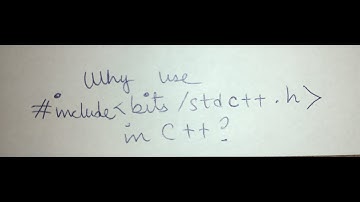 Why use
#include<bits/stdc++.h>
in C++?